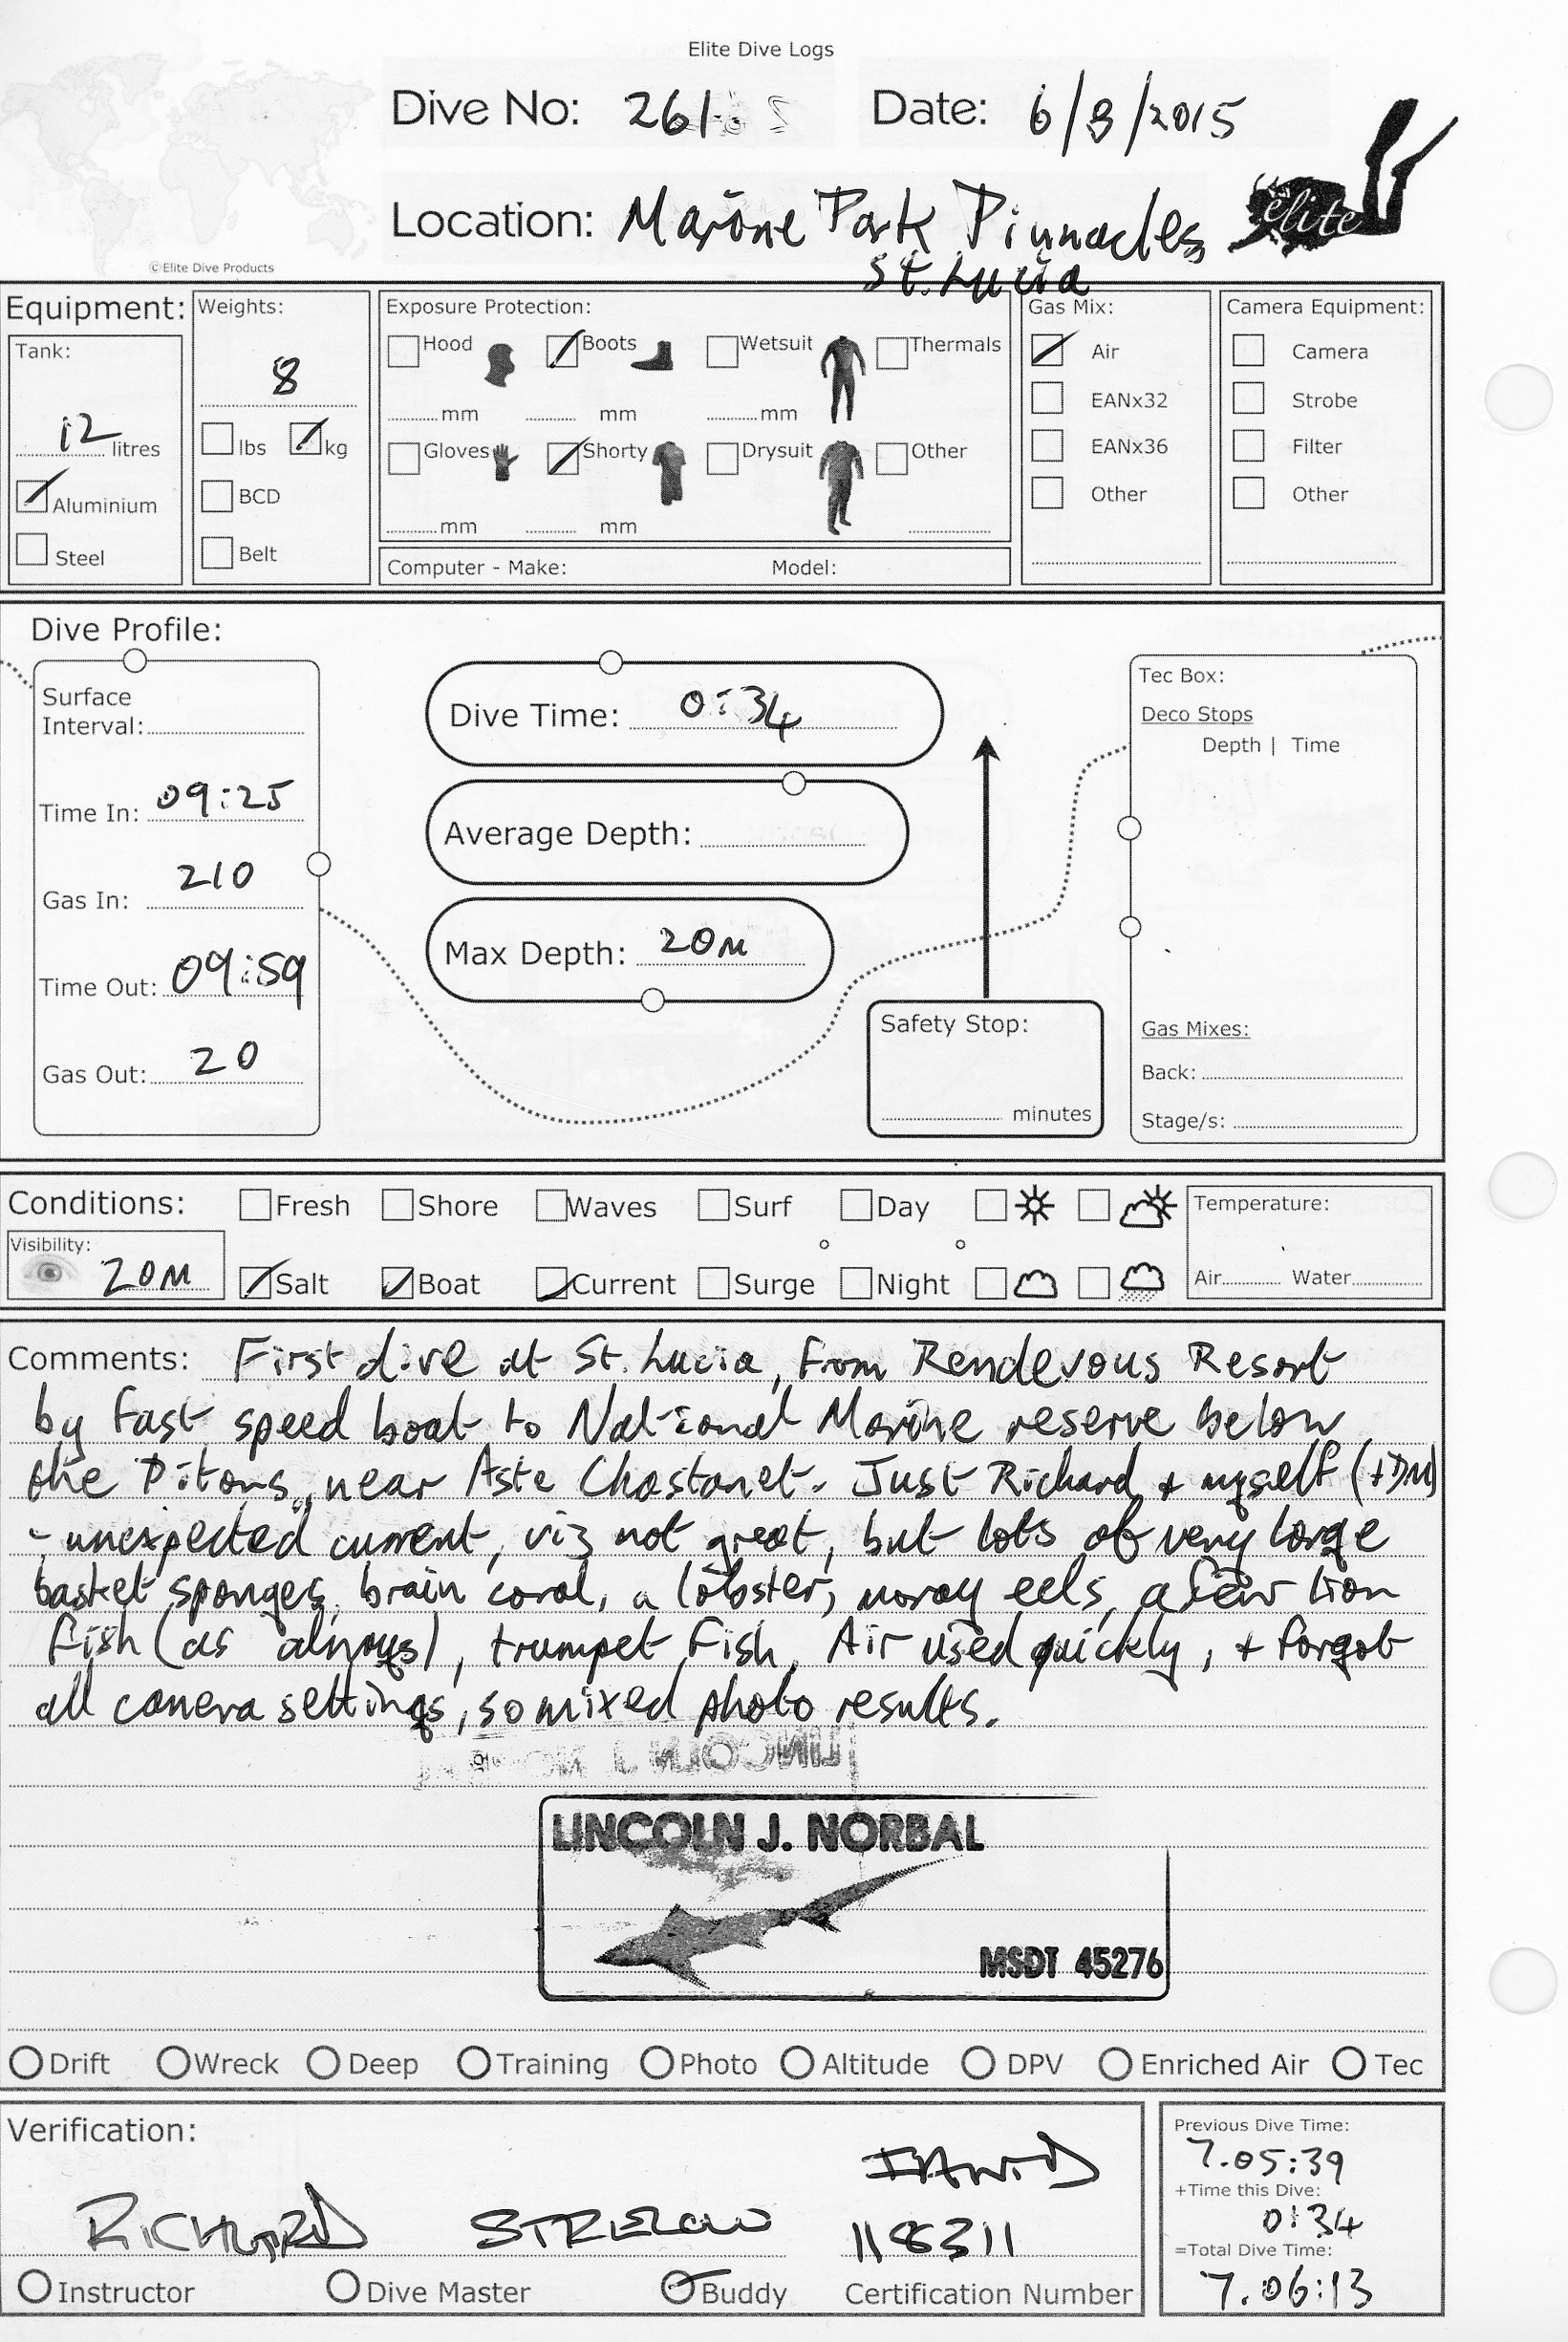 Elite Dive Logs
Dive No: 261 Date: 6/8/2015
Location: Marine Park Pinnacles
St. Lucia
élite
©Elite Dive Products
Equipment:
Tank:
12 litres
Aluminium
Steel
Weights:
8
lbs kg
BCD
Belt
Exposure Protection:
Hood Boots Wetsuit Thermals
mm mm mm
Gloves Shorty Drysuit Other
mm mm
Computer - Make: Model:
Gas Mix:
Air
EANx32
EANx36
Other
Camera Equipment:
Camera
Strobe
Filter
Other
Dive Profile:
Surface
Interval:
Time In: 09:25
Gas In: 210
Time Out: 09:59
Gas Out: 20
Dive Time: 0:34
Average Depth:
Max Depth: 20m
Safety Stop:
minutes
Tec Box:
Deco Stops
Depth | Time
Gas Mixes:
Back:
Stage/s:
Conditions:
Visibility:
20m
Fresh Shore Waves Surf Day
Salt Boat Current Surge Night
Temperature:
Air Water
Comments: First dive at St. Lucia, from Rendevous Resort
by fast speed boat to National Marine reserve below
the Pitons, near Aste Chastanet. Just Richard + myself (+DM)
- unexpected current, viz not great, but lots of very large
basket sponges, brain coral, a lobster, moray eels, a few lion
fish (as always), trumpet fish. Air used quickly, + forgot
all camera settings, so mixed photo results.
LINCOLN J. NORBAL
MSDT 45276
Drift Wreck Deep Training Photo Altitude DPV Enriched Air Tec
Verification:
RICHARD STRELOW
118311
Instructor Dive Master Buddy Certification Number
Previous Dive Time:
7.05:39
+Time this Dive:
0:34
=Total Dive Time:
7.06:13